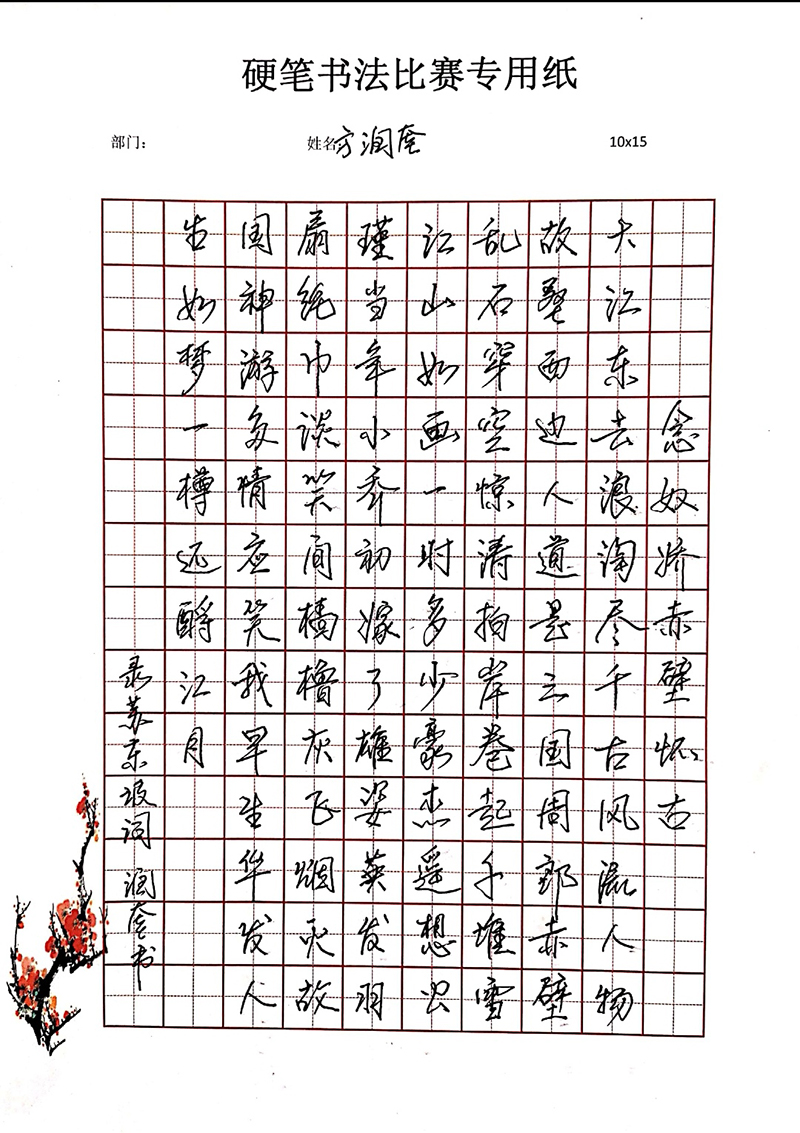 硬笔书法比赛专用纸
部门:
姓名:方润奎
10x15
念奴娇赤壁怀古
大江东去浪淘尽千古风流人物
故垒西边人道是三国周郎赤壁
乱石穿空惊涛拍岸卷起千堆雪
江山如画一时多少豪杰遥想公
瑾当年小乔初嫁了雄姿英发羽
扇纶巾谈笑间樯橹灰飞烟灭故
国神游多情应笑我早生华发人
生如梦一樽还酹江月
录苏东坡词润奎书